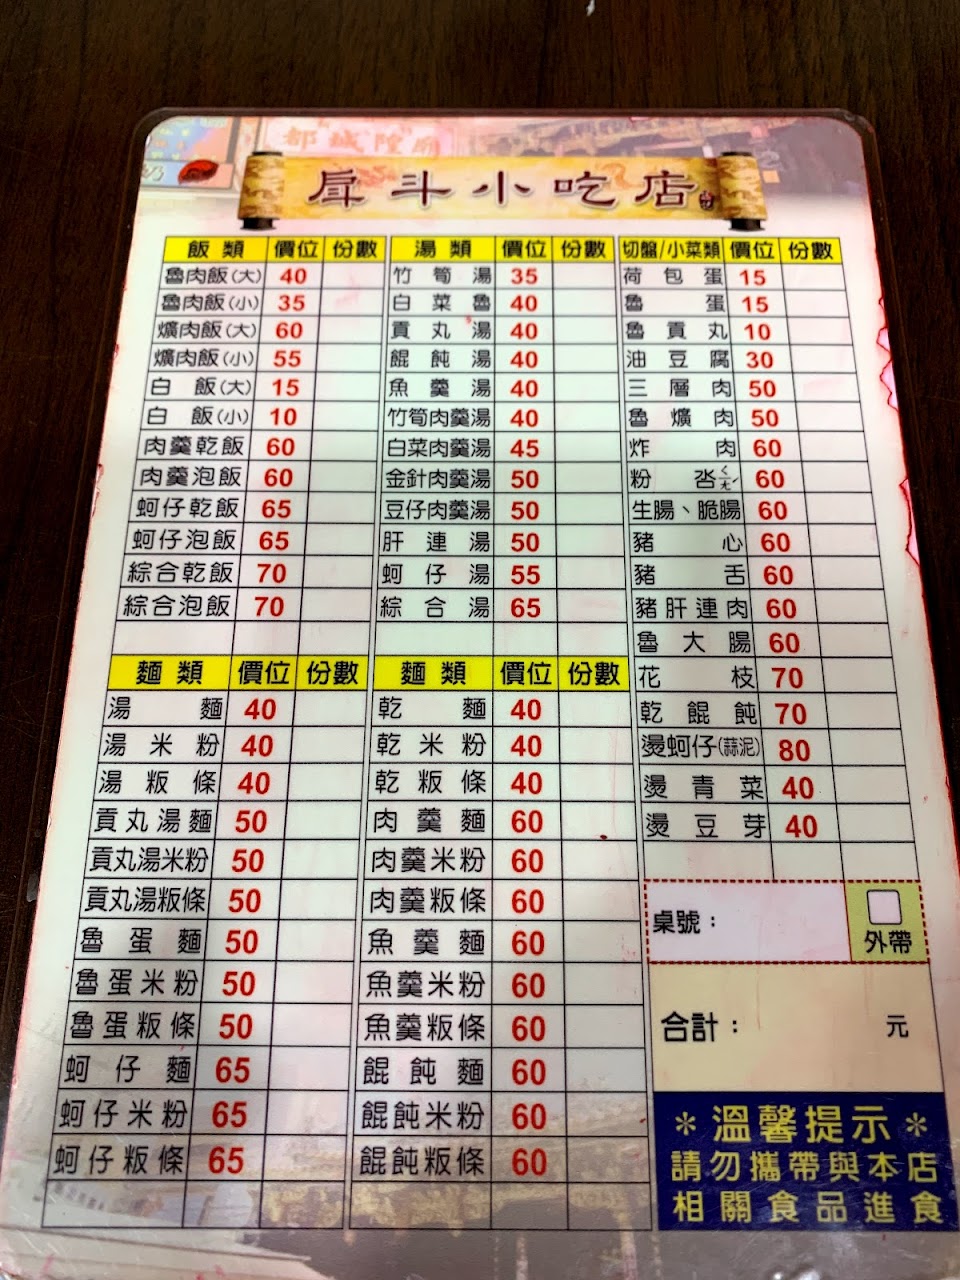 都城隍廟
戽斗小吃店
飯類 價位 份數
魯肉飯(大) 40
魯肉飯(小) 35
爌肉飯(大) 60
爌肉飯(小) 55
白飯(大) 15
白飯(小) 10
肉羹乾飯 60
肉羹泡飯 60
蚵仔乾飯 65
蚵仔泡飯 65
綜合乾飯 70
綜合泡飯 70
麵類 價位 份數
湯麵 40
湯米粉 40
湯粄條 40
貢丸湯麵 50
貢丸湯米粉 50
貢丸湯粄條 50
魯蛋麵 50
魯蛋米粉 50
魯蛋粄條 50
蚵仔麵 65
蚵仔米粉 65
蚵仔粄條 65
湯類 價位 份數
竹筍湯 35
白菜魯 40
貢丸湯 40
餛飩湯 40
魚羹湯 40
竹筍肉羹湯 40
白菜肉羹湯 45
金針肉羹湯 50
豆仔肉羹湯 50
肝連湯 50
蚵仔湯 55
綜合湯 65
麵類 價位 份數
乾麵 40
乾米粉 40
乾粄條 40
肉羹麵 60
肉羹米粉 60
肉羹粄條 60
魚羹麵 60
魚羹米粉 60
魚羹粄條 60
餛飩麵 60
餛飩米粉 60
餛飩粄條 60
切盤/小菜類 價位 份數
荷包蛋 15
魯蛋 15
魯貢丸 10
油豆腐 30
三層肉 50
魯爌肉 50
炸肉 60
粉 60
生腸、脆腸 60
豬心 60
豬舌 60
豬肝連肉 60
魯大腸 60
花枝 70
乾餛飩 70
燙蚵仔(蒜泥) 80
燙青菜 40
燙豆芽 40
桌號：
外帶
合計： 元
＊溫馨提示＊
請勿攜帶與本店
相關食品進食